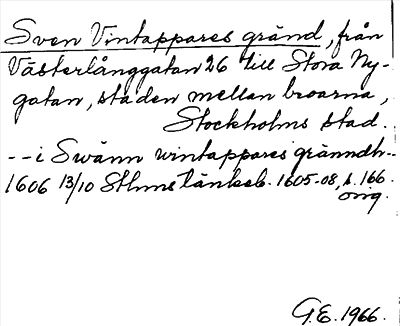 Sven Vintappares gränd, från
Västerlånggatan 26 till Stora Ny-
gatan, staden mellan broarna,
Stockholms stad.
-- i Swänn wintappares gränndh--
1606 13/10 Sthms tänkeb. 1605-08, s. 166.
orig.
G.E. 1966.